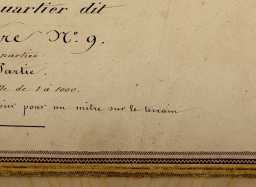 uartier dit
re N.º 9.
Partie.
le de 1 à 1000.
pour un mètre sur le terrain